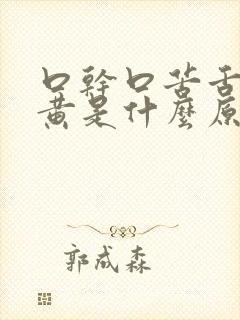 口幹口苦舌
黃是什麼原
郭成森